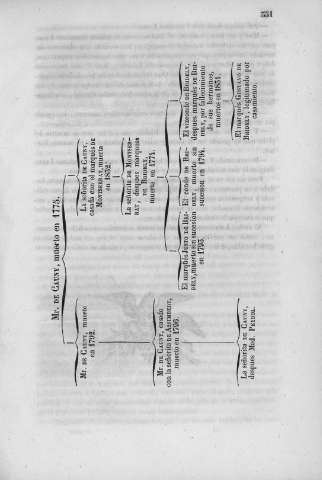 551
MR. DE CAUNY, muerto en 1775.
MR. DE CAUNY, muerto
en 1792.
MR. DE CAUNY, casado
con la señorita DE
muerto en 1796.
La señorita DE CAUNY,
despues Mad. PERSIL.
La señorita DE CAUNY,
casada con el marqués DE
muerta
en 1832.
La señorita DE
despues marquesa
DE
muerta en 1771.
El marqués JUSTO DE
muerto sin sucesion
en 1793.
El conde DE
muerto sin
sucesion en 1794.
El vizconde DE
despues marqués DE
por fallecimiento
de sus hermanos,
muertos en 1831.
El marqués GUSTAVO DE
legitimado por
casamiento.